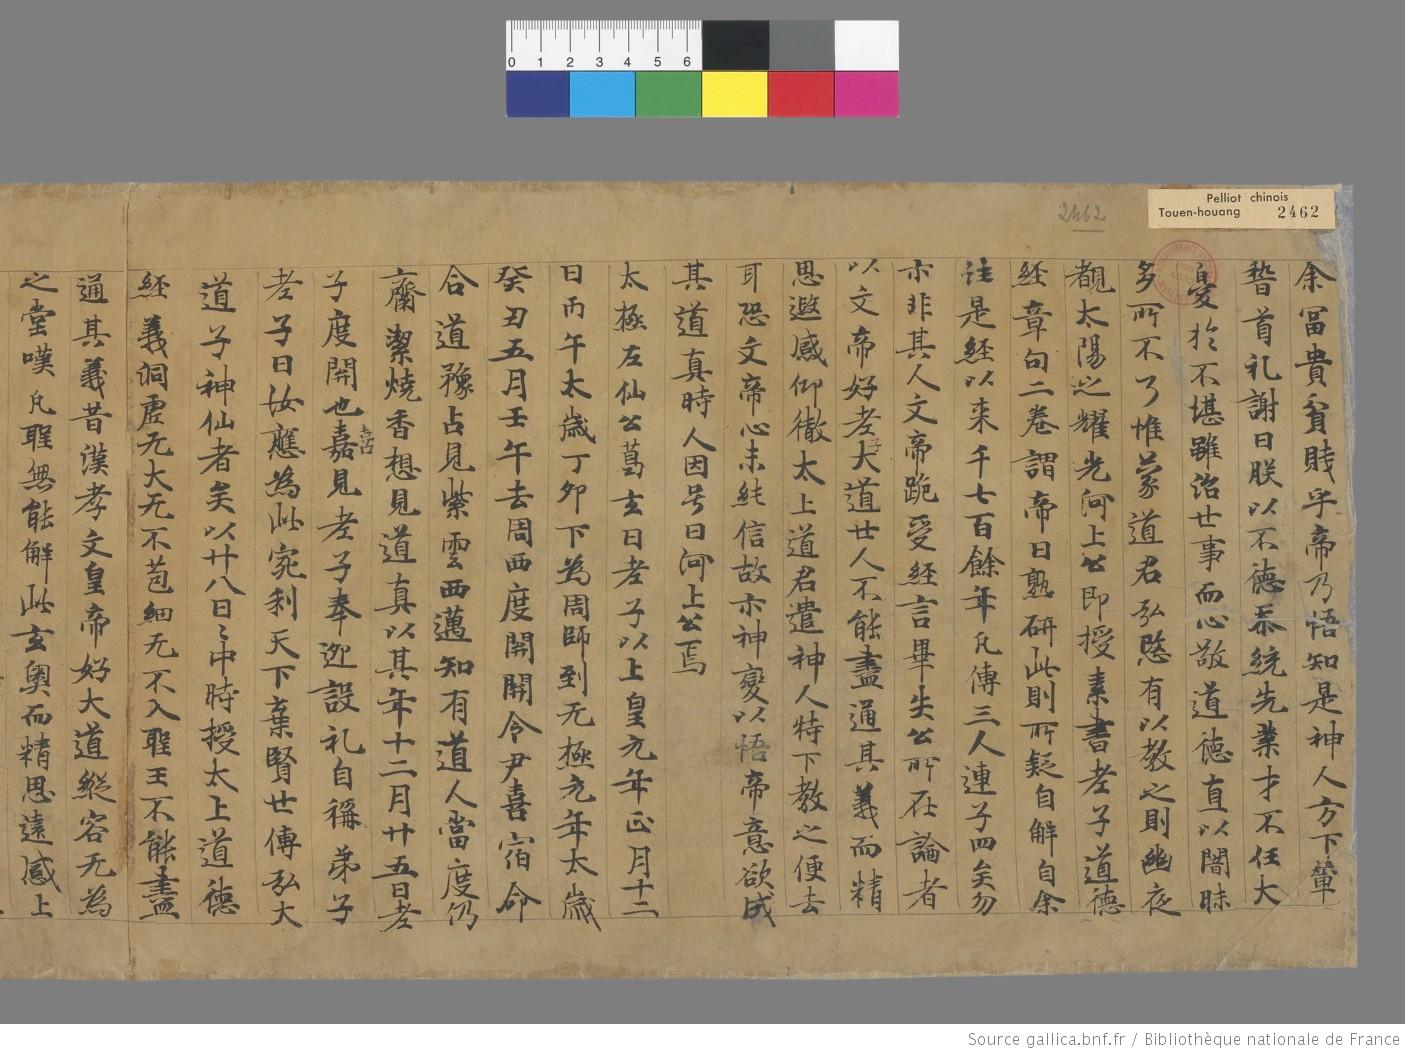 0 1 2 3 4 5 6
Pelliot chinois
Touen-houang 2462
2462
余冨貴貧賎乎帝乃悟知是神人方下輦
𥡴首礼謝曰朕以不德忝統先業才不任大
㥑於不堪雖治世事而心敬道德直以闇昧
多所不了惟蒙道君弘愍有以教之則幽夜
覩太陽之耀光河上公即授素書老子道德
經章句二卷謂帝曰熟研此則所疑自解自余
注是經以来千七百餘年凢傳三人連子四矣勿
示非其人文帝跪受經言畢失公所在論者
以文帝好老大道世人不能盡通其義而精
思遐感仰徹太上道君遣神人特下教之便去
耳恐文帝心未純信故示神變以悟帝意欲成
其道真時人因号曰河上公焉
太極左仙公葛玄曰老子以上皇元年正月十二
日丙午太歳丁卯下為周師到无極元年太歳
癸丑五月壬午去周西度關關令尹喜宿命
合道豫占見紫雲西邁知有道人當度仍
齋潔燒香想見道真以其年十二月廿五日老
子度關也嘉見老子奉迎設礼自稱弟子
喜
老子曰汝應為此宛利天下棄賢世傳弘大
道子神仙者矣以廿八日〻中時授太上道德
經義洞虚无大无不苞細无不入聖王不能盡
通其義昔漢孝文皇帝好大道縱容无為
之堂嘆凢聖無能解此玄奥而精思遠感上
Source gallica.bnf.fr / Bibliothèque nationale de France